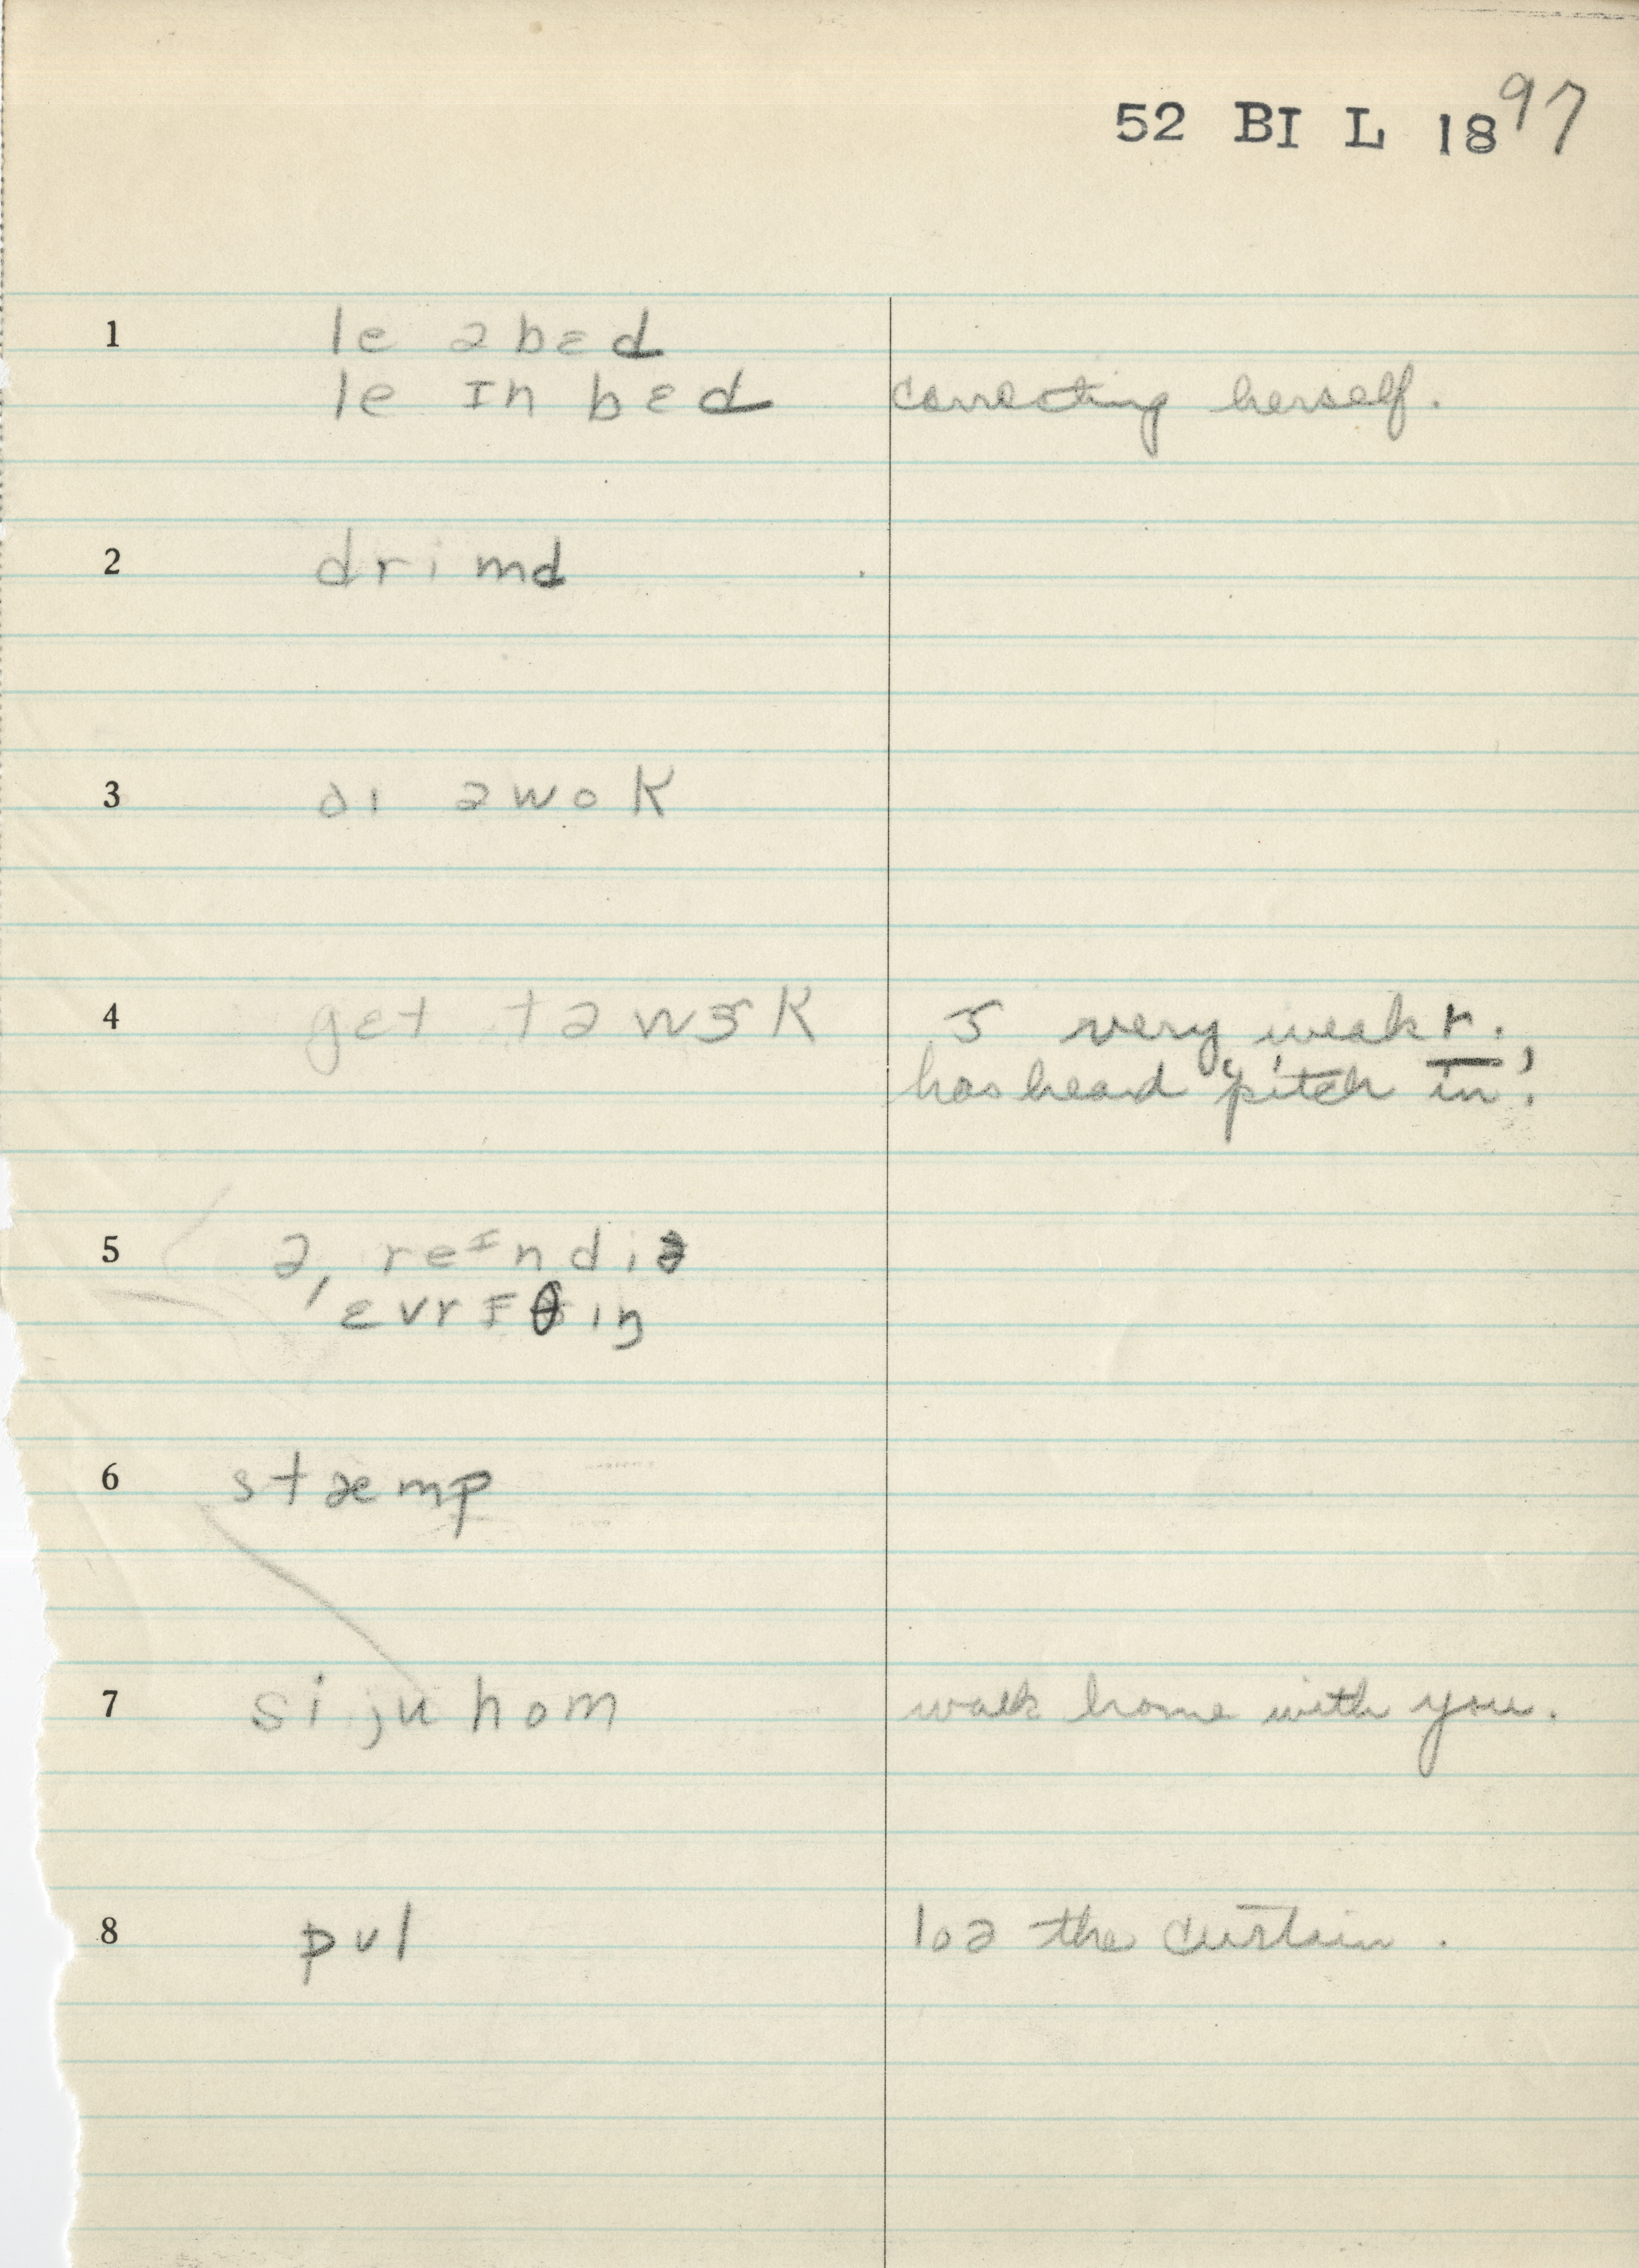 52 BI L 1897
1 le ə bɛd
le ɪn bɛd correcting herself.
2 drimd
3 aɪ əwok
4 get tə wɝk ɝ very weak r.
has heard "pitch in".
5 ə, reɪndiə
ˈɛvrɪθiŋ
6 stæmp
7 si ju hom walk home with you.
8 pʊl loə the curtain.